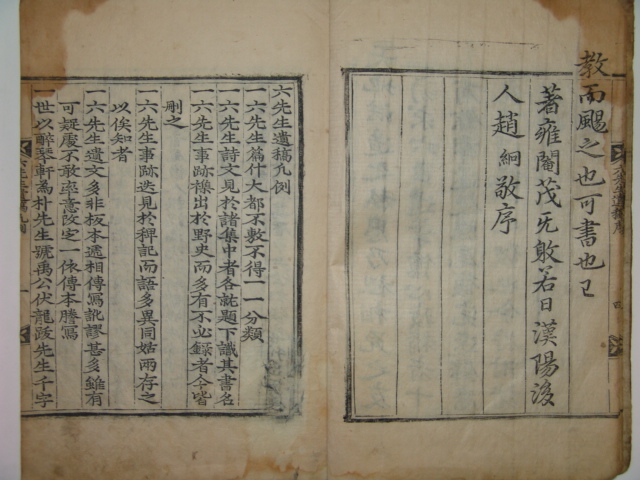 教而颺之也可書也已
著雍閹茂旡射若日漢陽後
人趙絅敬序
六先生遺稿凡例
一六先生篇什大都不敷不得一一分類
一六先生詩文見於諸集中者各於題下識其書名
一六先生事跡襍出於野史而多有不必錄者今皆
刪之
一六先生事跡迭見於稗記而語多異同姑兩存之
以俟知者
一六先生遺文多非板本遞相傳寫訛謬甚多雖有
可疑處不敢率意改定一依傳本謄寫
一世以醉琴軒爲朴先生號禹公伏龍跋先生千字